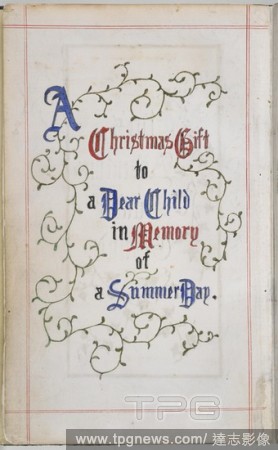 A
Christmas Gift
to
a Dear Child
in Memory
of
a Summer Day.
TPG
www.tpgnews.com/達志影像